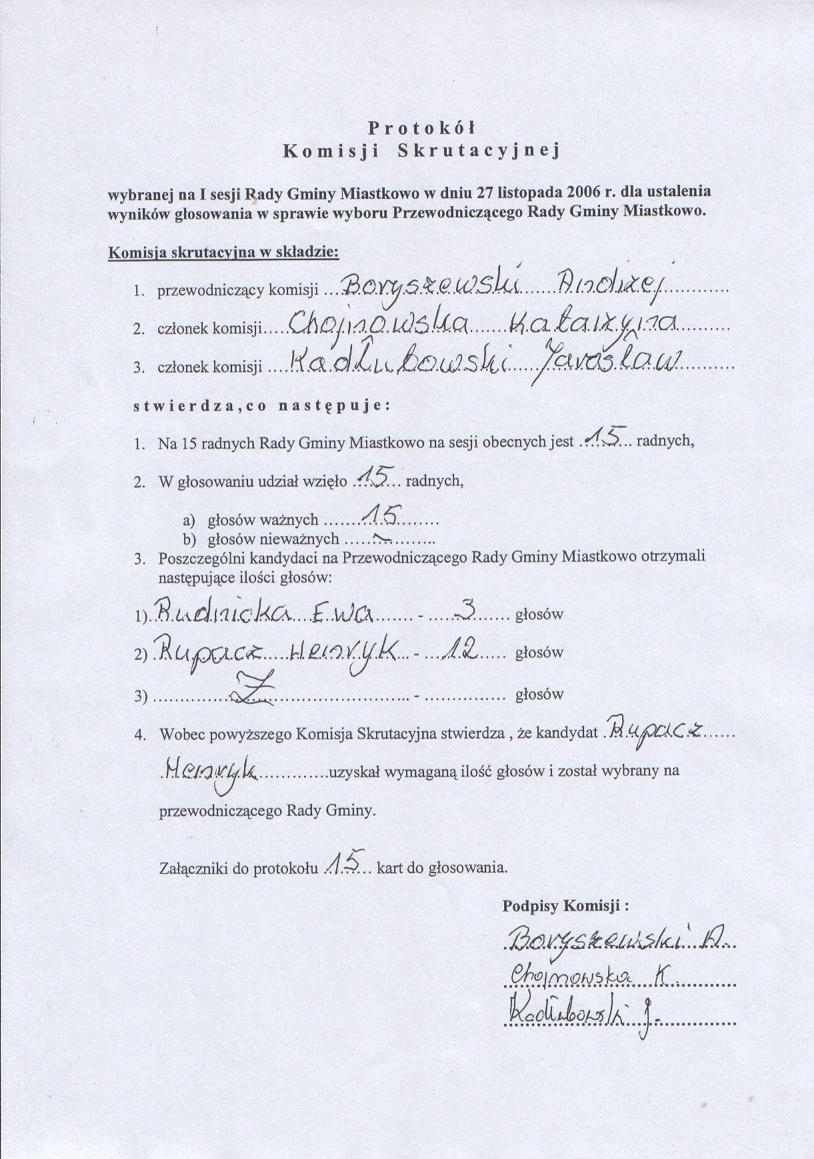 Protokół
Komisji Skrutacyjnej
wybranej na I sesji Rady Gminy Miastkowo w dniu 27 listopada 2006 r. dla ustalenia
wyników głosowania w sprawie wyboru Przewodniczącego Rady Gminy Miastkowo.
Komisja skrutacyjna w składzie:
1. przewodniczący komisji ...Boryszewski......Andrzej............
2. członek komisji....Chojnowska......Katarzyna.........
3. członek komisji ....Kadłubowski......Jarosław..........
stwierdza,co następuje:
1. Na 15 radnych Rady Gminy Miastkowo na sesji obecnych jest ..15... radnych,
2. W głosowaniu udział wzięło ..15... radnych,
a) głosów ważnych .......15........
b) głosów nieważnych .....~........
3. Poszczególni kandydaci na Przewodniczącego Rady Gminy Miastkowo otrzymali
następujące ilości głosów:
1)..Rudnicka...Ewa....... - ....3....... głosów
2) .Rupacz....Henryk... - ...12..... głosów
3) ............Z........................... - ............... głosów
4. Wobec powyższego Komisja Skrutacyjna stwierdza , że kandydat .Rupacz......
.Henryk.............uzyskał wymaganą ilość głosów i został wybrany na
przewodniczącego Rady Gminy.
Załączniki do protokołu ..15... kart do głosowania.
Podpisy Komisji :
.Boryszewski...A..
.Chojnowska...K............
Kadłubowski J...............